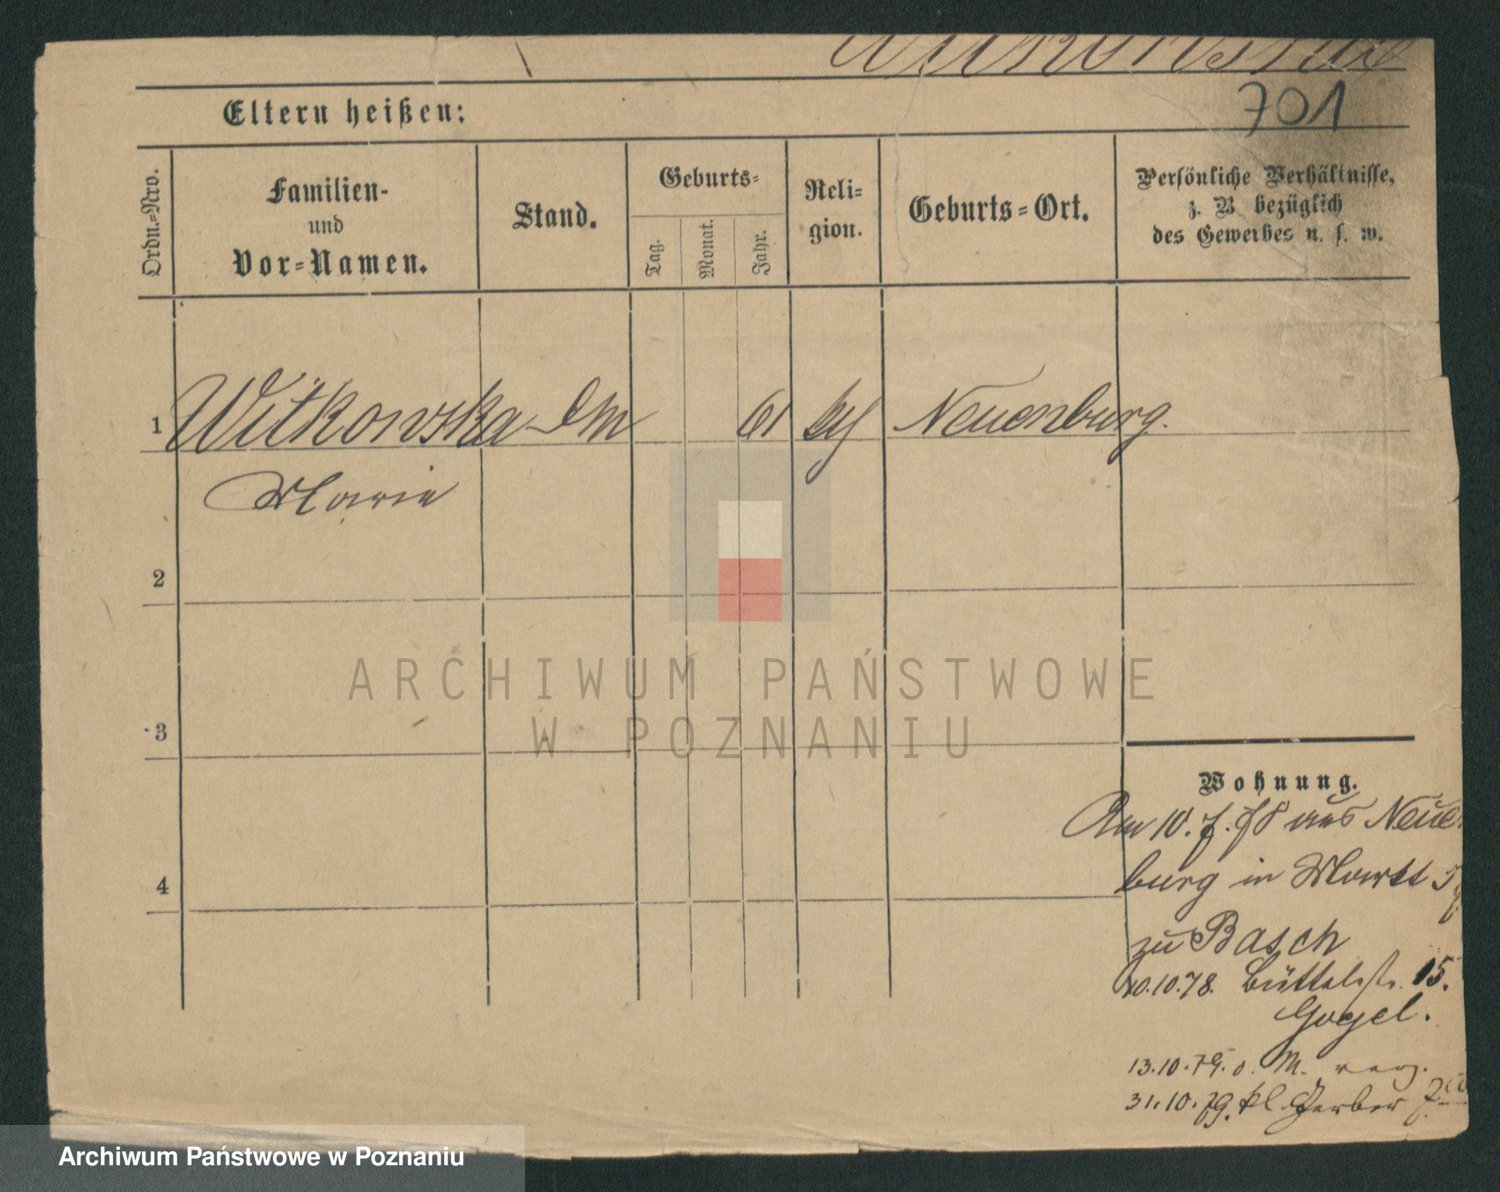 Witkowska
701
Eltern heißen:
Ordn.-Nro.
Familien-
und
Vor-Namen.
Stand.
Geburts-
Tag.
Monat.
Jahr.
Reli-
gion.
Geburts-Ort.
Persönliche Verhältnisse,
z. B bezüglich
des Gewerbes u. s. w.
1 Witkowska DM 61 Neuenburg.
Marie
2
3
4
Wohnung.
Am 10. 7. 78 aus Neuen
burg in Markt
zu Basch
10.10.78. Büttelstr. 15.
Gogel.
13.10.79. o. M. verz.
31.10.79. kl. Gerber
ARCHIWUM PAŃSTWOWE
W POZNANIU
Archiwum Państwowe w Poznaniu